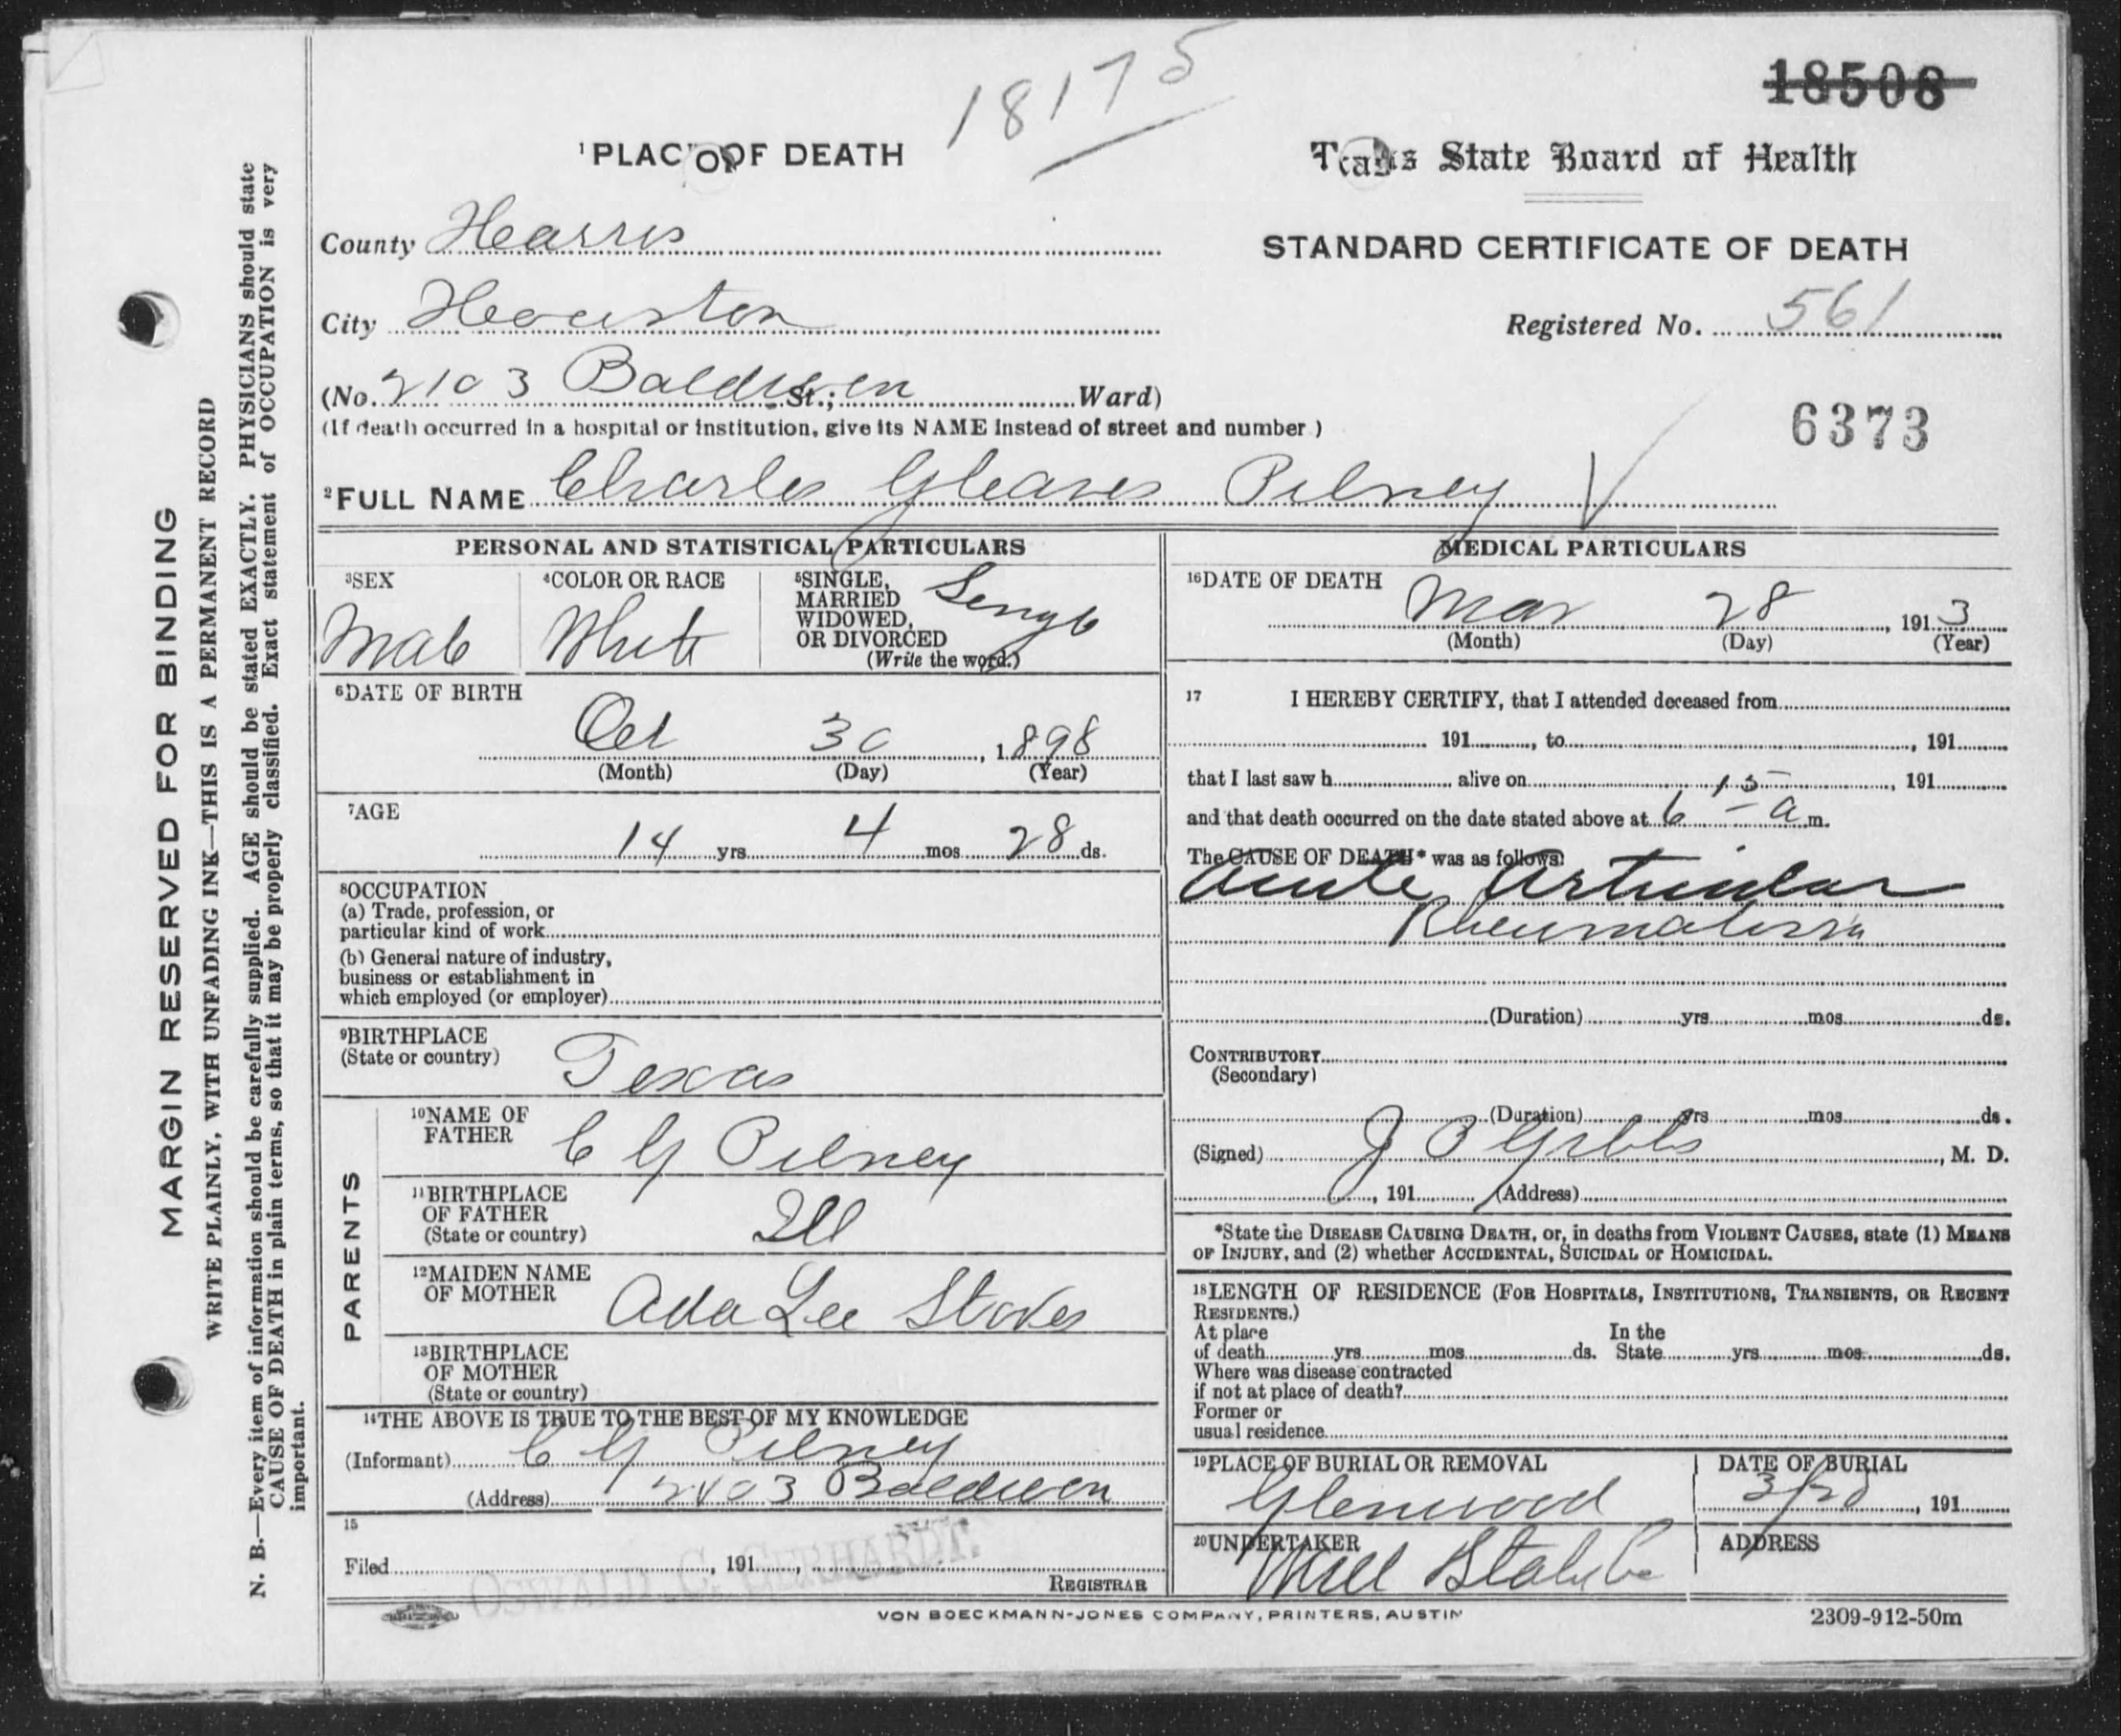 18175
18508
1 PLAC OF DEATH
Texas State Board of Health
STANDARD CERTIFICATE OF DEATH
County Harris
City Houston
Registered No. 561
(No. 2103 Baldwin St.; Ward)
(If death occurred in a hospital or institution, give its NAME instead of street and number.)
6373
2 FULL NAME Charles Gleaves Pilney
PERSONAL AND STATISTICAL PARTICULARS
3 SEX
Male
4 COLOR OR RACE
White
5 SINGLE,
MARRIED
WIDOWED,
OR DIVORCED
(Write the word.)
Single
6 DATE OF BIRTH
Oct 30, 1898
(Month) (Day) (Year)
7 AGE
14 yrs. 4 mos 28 ds.
8 OCCUPATION
(a) Trade, profession, or
particular kind of work
(b) General nature of industry,
business or establishment in
which employed (or employer)
9 BIRTHPLACE
(State or country)
Texas
PARENTS
10 NAME OF
FATHER
C G Pilney
11 BIRTHPLACE
OF FATHER
(State or country)
Ill
12 MAIDEN NAME
OF MOTHER
Ada Lee Stokes
13 BIRTHPLACE
OF MOTHER
(State or country)
14 THE ABOVE IS TRUE TO THE BEST OF MY KNOWLEDGE
(Informant) C G Pilney
(Address) 2103 Baldwin
15
Filed , 191 ,
OSWALD C. GERHARDT.
REGISTRAR
MEDICAL PARTICULARS
16 DATE OF DEATH
Mar 28, 1913
(Month) (Day) (Year)
17 I HEREBY CERTIFY, that I attended deceased from
191 , to , 191
that I last saw h alive on , 191
and that death occurred on the date stated above at 6 15 a m.
The CAUSE OF DEATH* was as follows:
Acute Articular
Rheumatism
(Duration) yrs mos ds.
CONTRIBUTORY
(Secondary)
(Duration) yrs mos ds.
(Signed) J P Gibbs , M. D.
, 191 (Address)
*State the DISEASE CAUSING DEATH, or, in deaths from VIOLENT CAUSES, state (1) MEANS
OF INJURY, and (2) whether ACCIDENTAL, SUICIDAL or HOMICIDAL.
18 LENGTH OF RESIDENCE (FOR HOSPITALS, INSTITUTIONS, TRANSIENTS, OR RECENT
RESIDENTS.)
At place
of death yrs mos ds. In the State yrs mos ds.
Where was disease contracted
if not at place of death?
Former or
usual residence
19 PLACE OF BURIAL OR REMOVAL
Glenwood
DATE OF BURIAL
, 191
20 UNDERTAKER
Wall & Stabe Co
ADDRESS
VON BOECKMANN-JONES COMPANY, PRINTERS, AUSTIN
2309-912-50m
MARGIN RESERVED FOR BINDING
WRITE PLAINLY, WITH UNFADING INK—THIS IS A PERMANENT RECORD
N. B.—Every item of information should be carefully supplied. AGE should be stated EXACTLY. PHYSICIANS should state
CAUSE OF DEATH in plain terms, so that it may be properly classified. Exact statement of OCCUPATION is very
important.